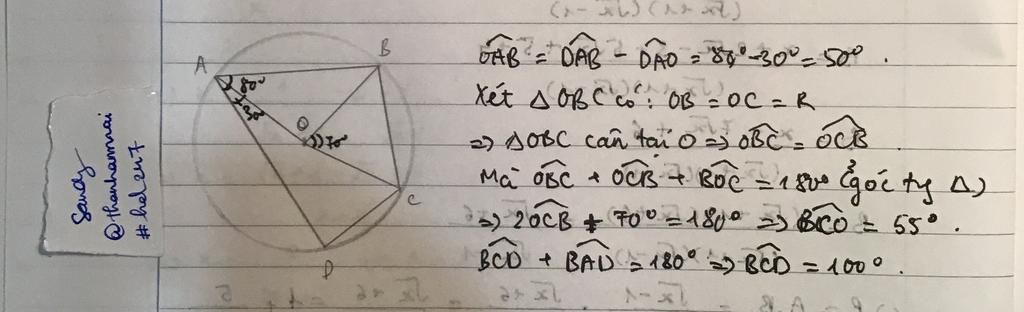 Sandy
@thanhanmai
#helen7
A
B
80°
30°
O
70°
C
D
OAB = DAB - DAO = 80° - 30° = 50°.
Xét Δ OBC có: OB = OC = R
=> ΔOBC cân tại O => OBC = OCB.
Mà OBC + OCB + BOC = 180° (góc Δ)
=> 2OCB + 70° = 180° => BCO = 55°.
BCD + BAD = 180° => BCD = 100°.